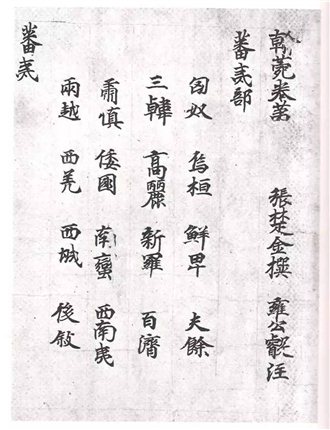 翰苑卷第 張楚金撰 雍公叡注
蕃夷部
匈奴 烏桓 鮮卑 夫餘
三韓 高麗 新羅 百濟
肅慎 倭國 南蠻 西南夷
兩越 西羌 西域 後敘
蕃夷